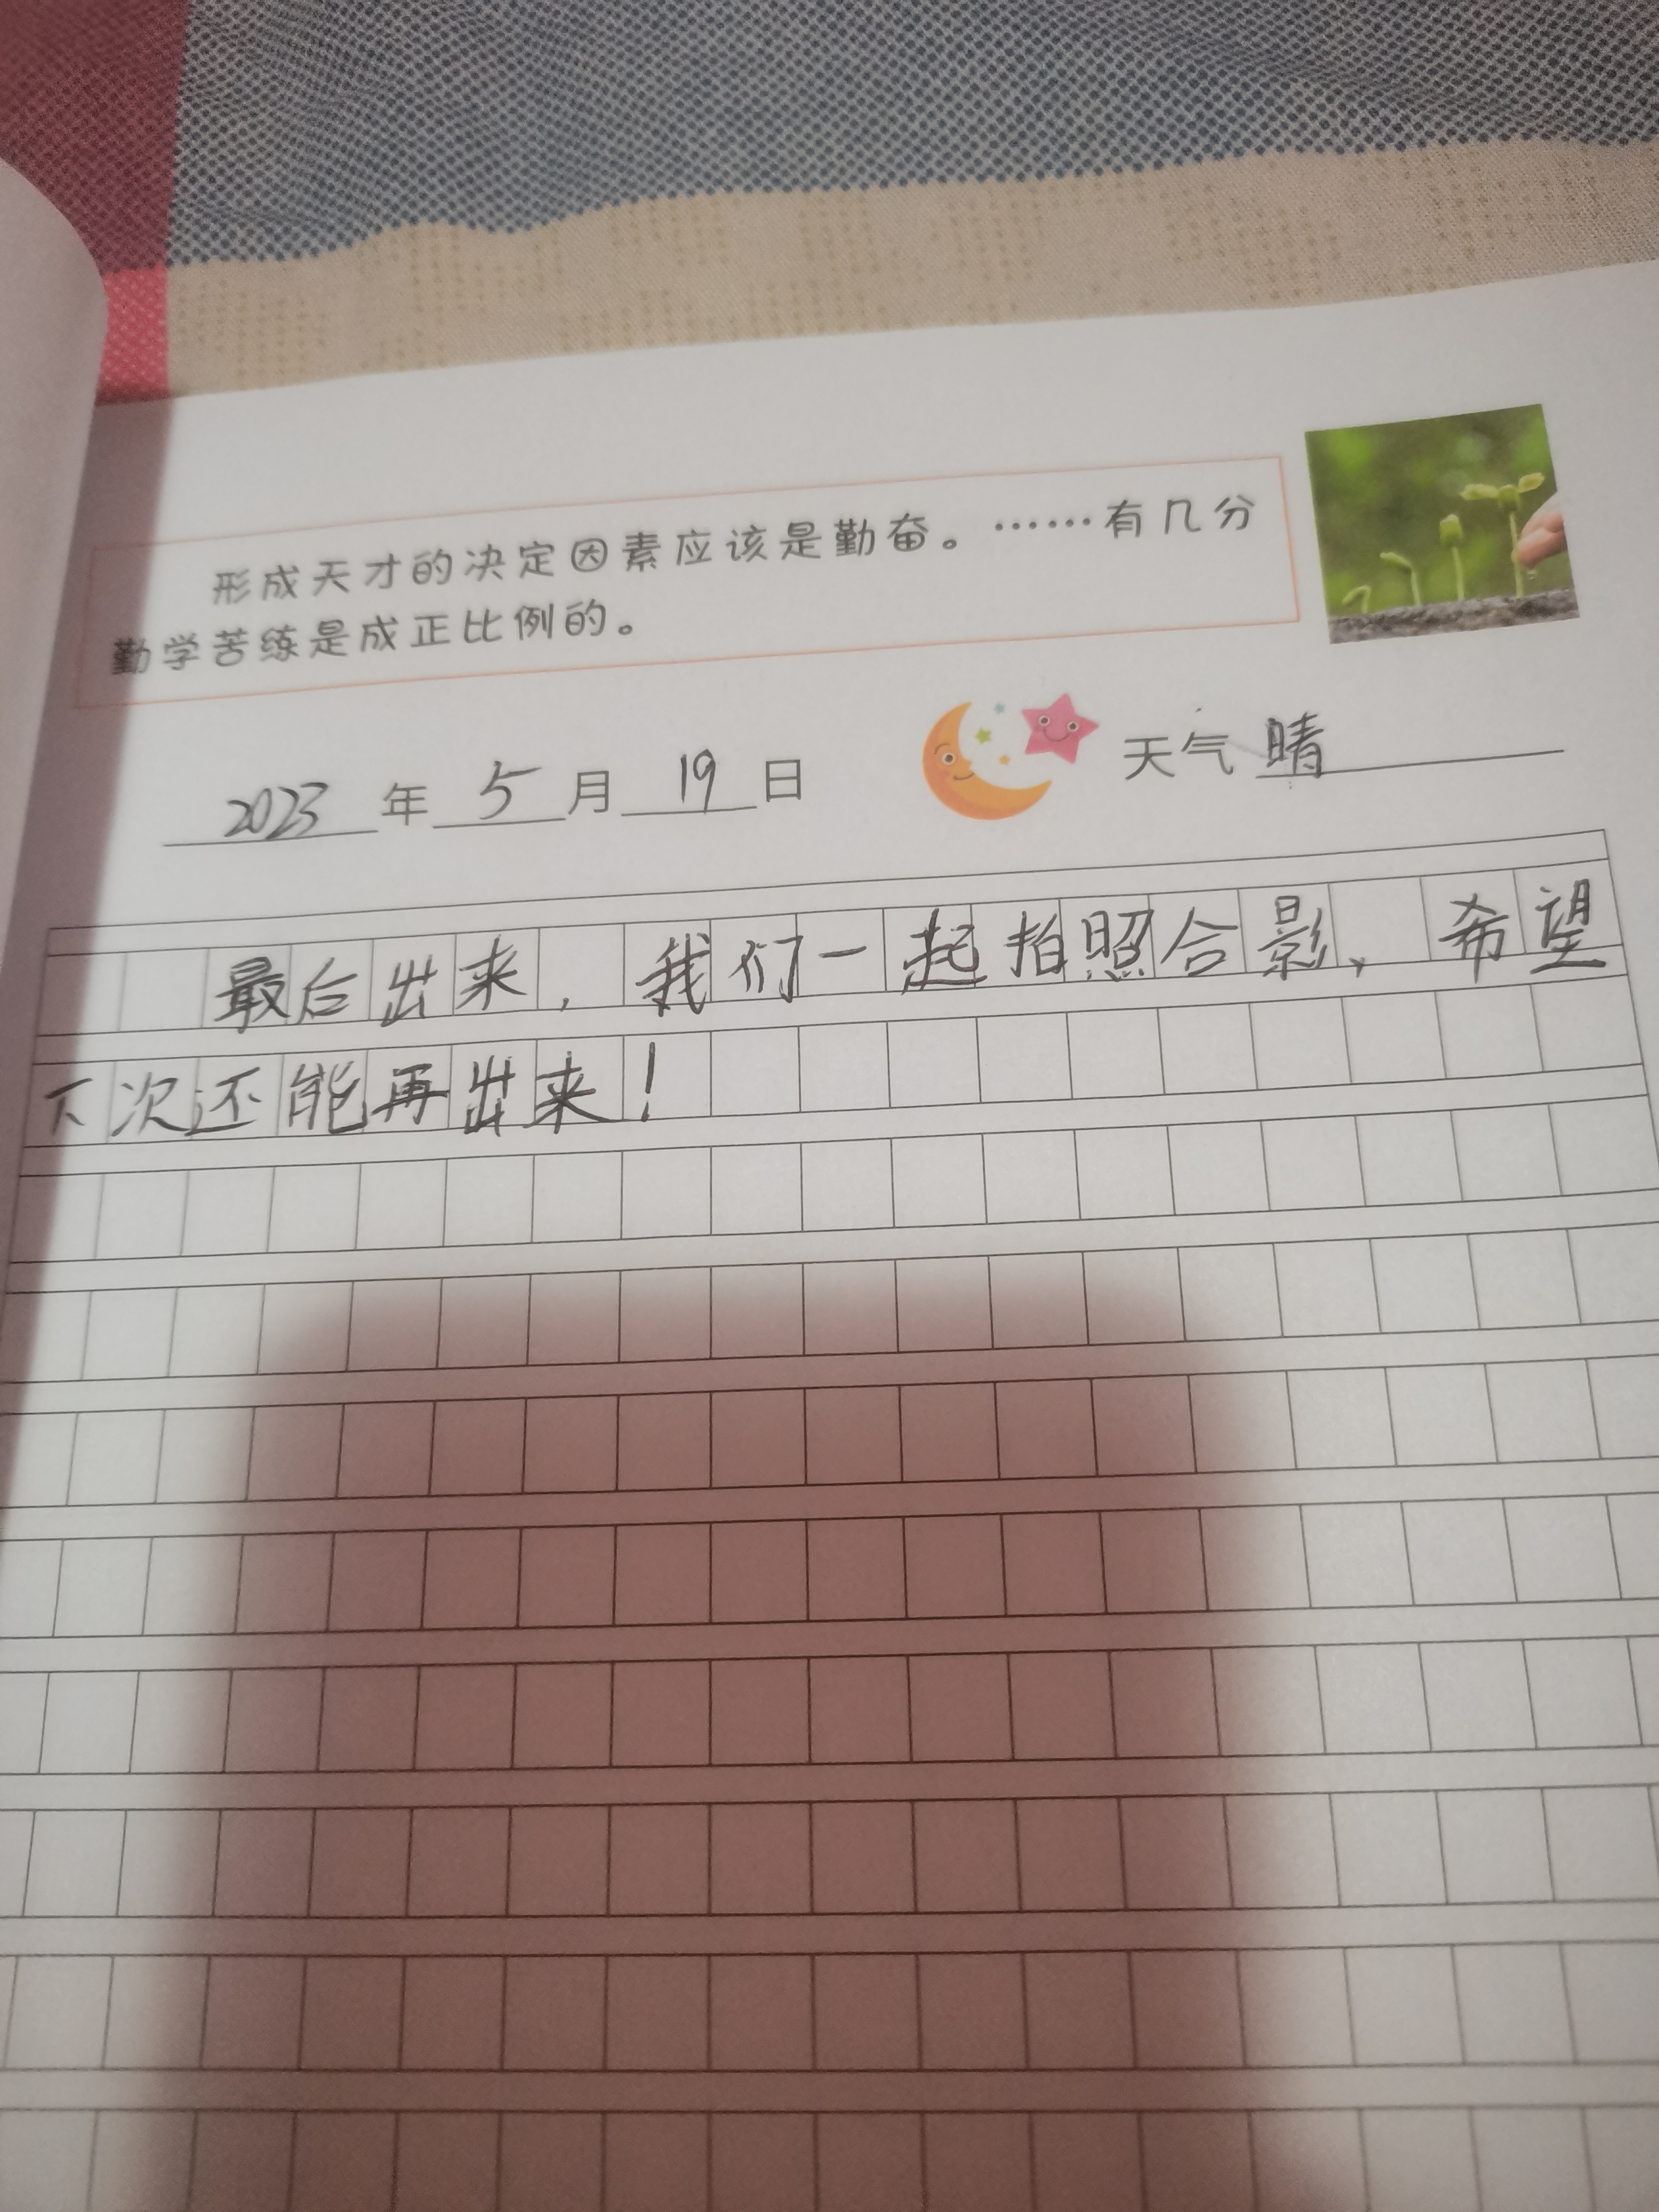 形成天才的决定因素应该是勤奋。……有几分
勤学苦练是成正比例的。
2023年5月19日 天气 晴
最后出来，我们一起拍照合影、希望
下次还能再出来！